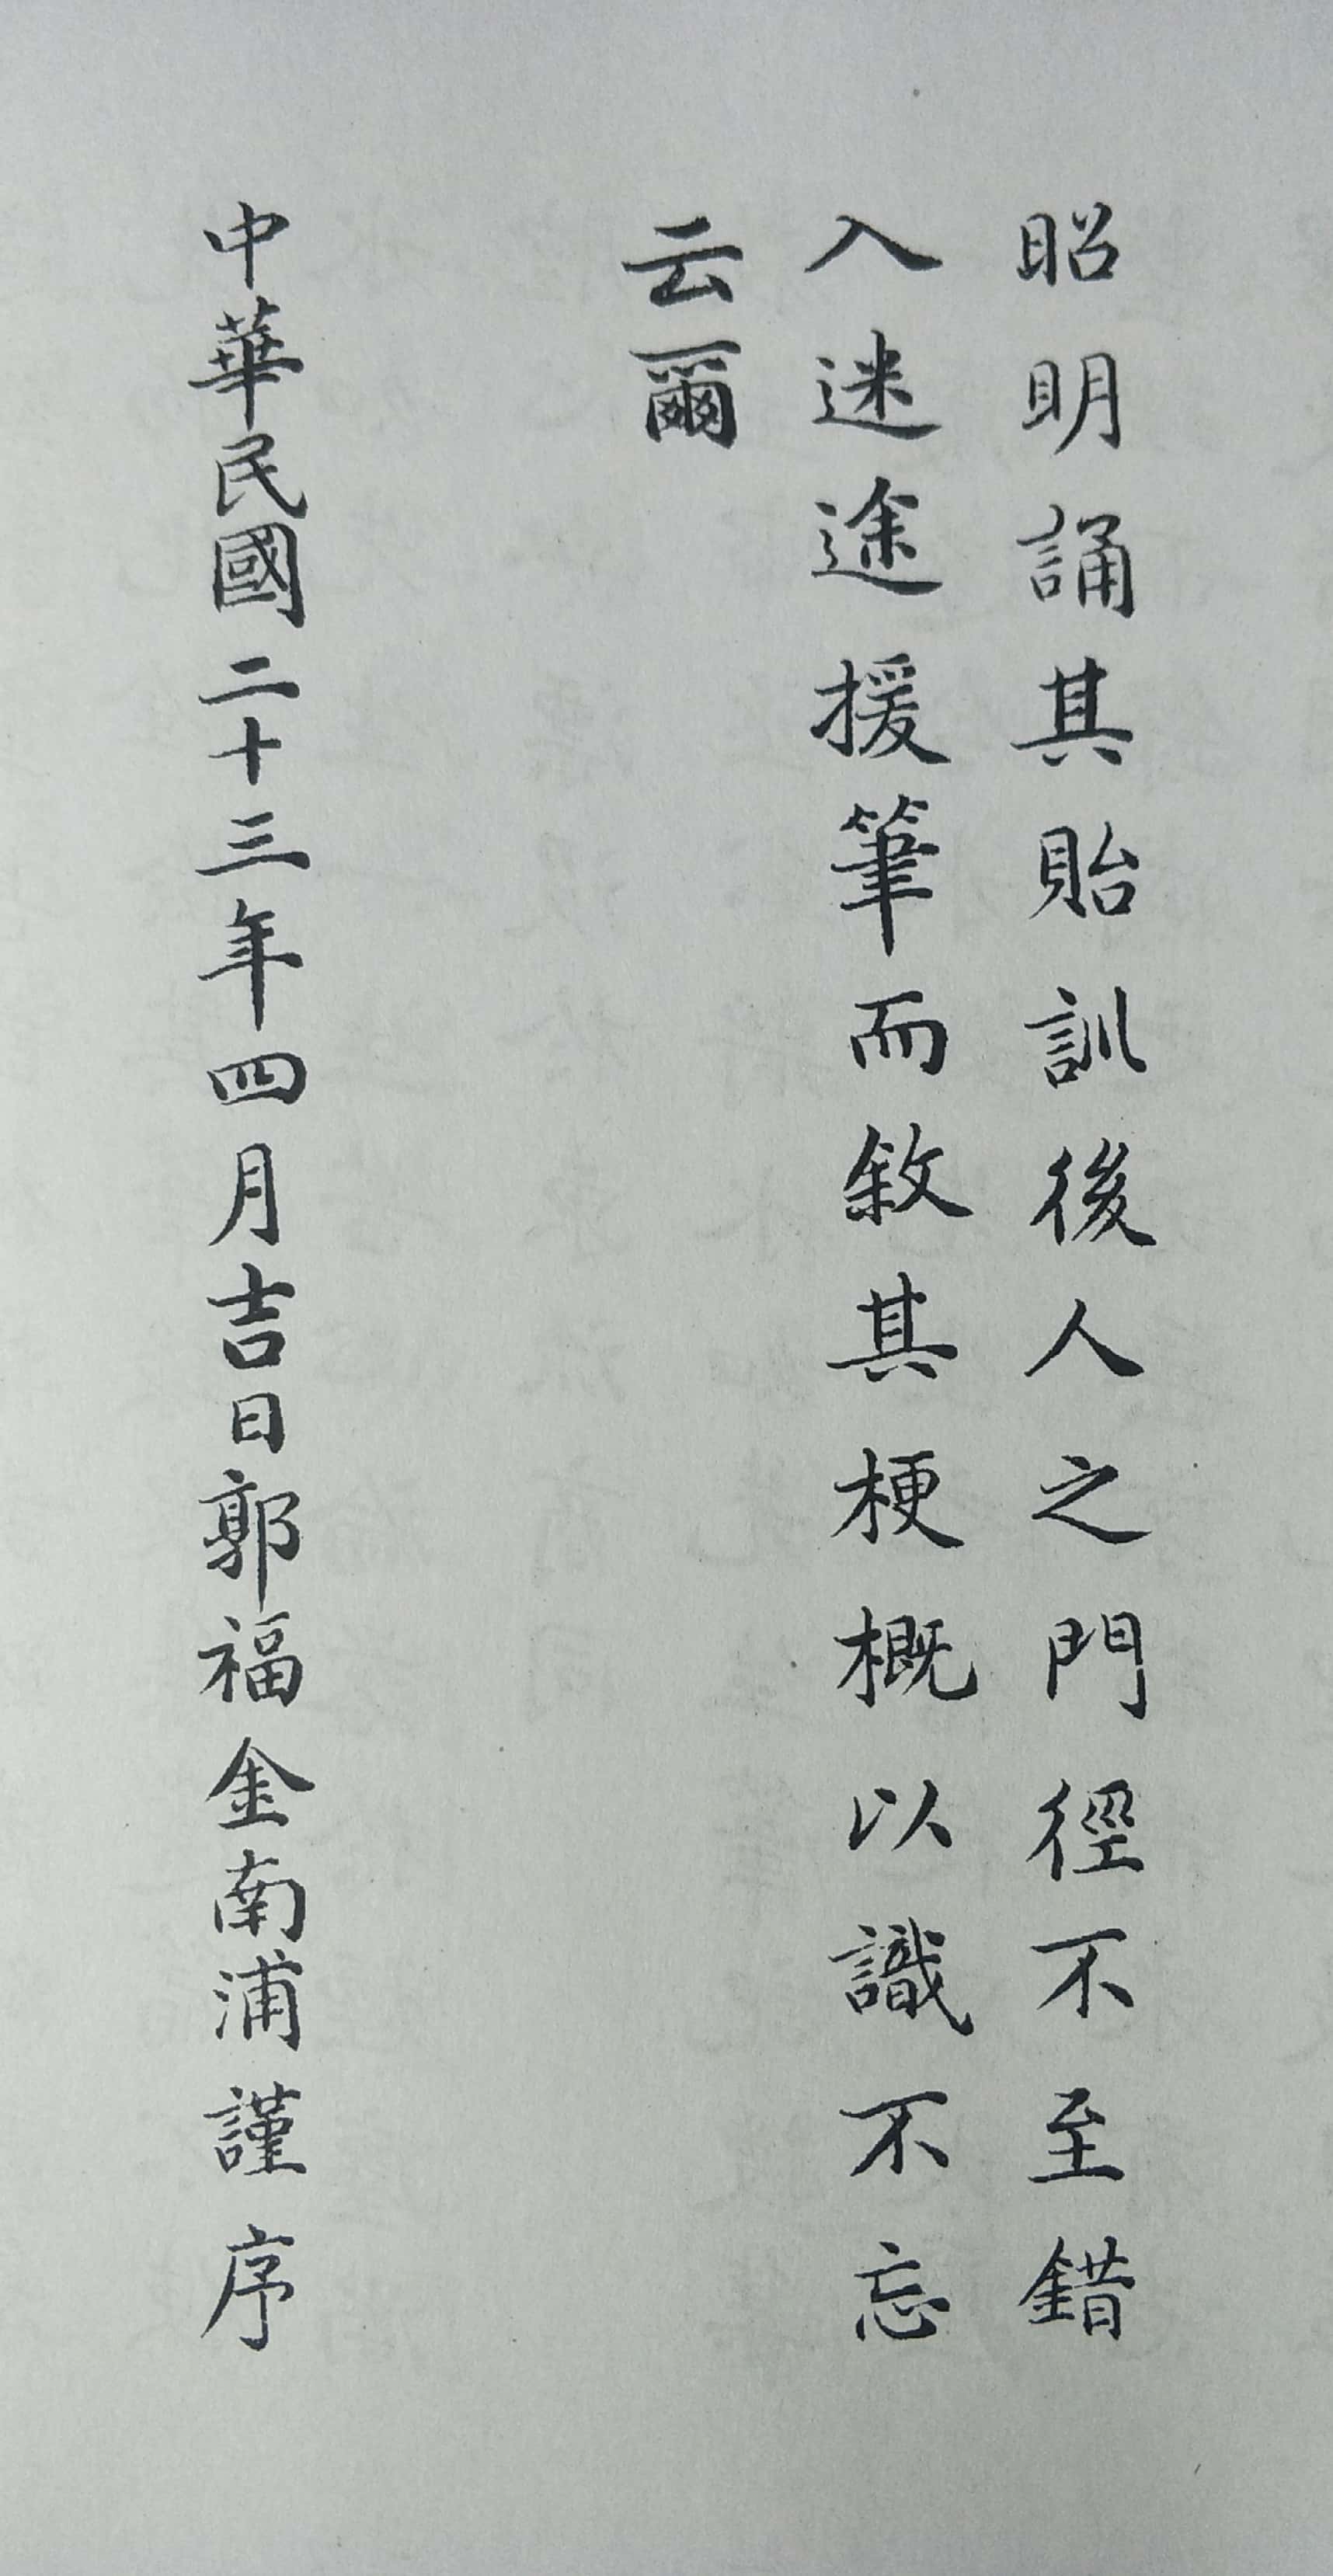 昭明誦其貽訓後人之門徑不至錯
入迷途援筆而敘其梗概以識不忘
云爾
中華民國二十三年四月吉日郭福金南浦謹序